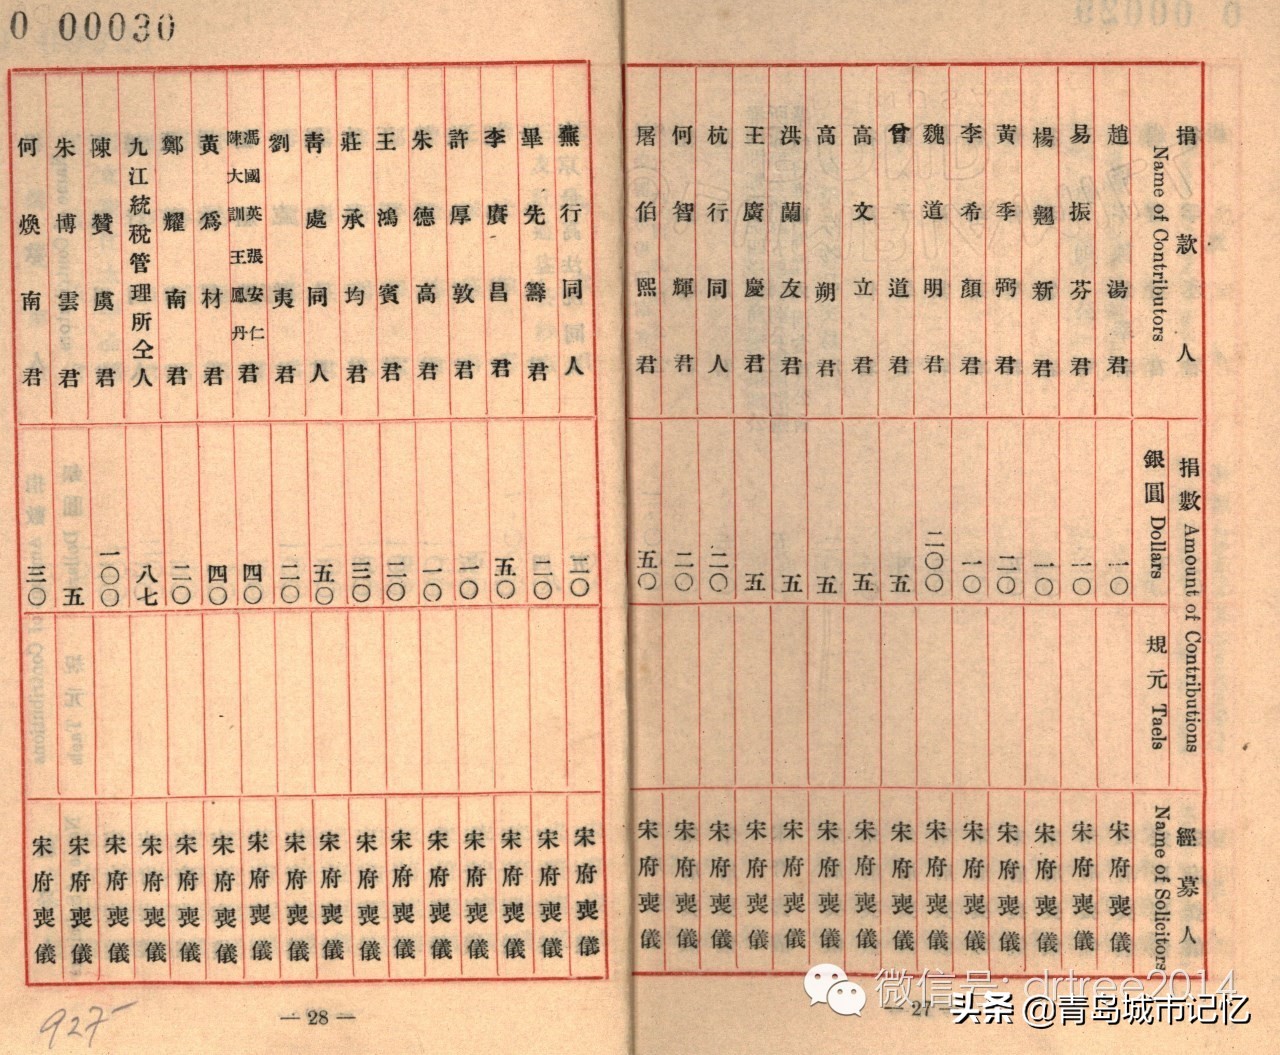 捐款人
Name of Contributors
捐數 Amount of Contributions
銀圓 Dollars
規元 Taels
經募人
Name of Solicitors
趙湯君 一〇 宋府喪儀
易振芬君 一〇 宋府喪儀
楊翹新君 一〇 宋府喪儀
黃季弼君 二〇 宋府喪儀
李希顏君 一〇 宋府喪儀
魏道明君 二〇〇 宋府喪儀
曾道君 五 宋府喪儀
高文立君 五 宋府喪儀
高朔君 五 宋府喪儀
洪蘭友君 五 宋府喪儀
王廣慶君 五 宋府喪儀
杭行同人 二〇 宋府喪儀
何智輝君 二〇 宋府喪儀
屠伯熙君 五〇 宋府喪儀
— 27 —
0 00030
蕪行同人 三〇 宋府喪儀
畢先籌君 二〇 宋府喪儀
李賡昌君 五〇 宋府喪儀
許厚敦君 一〇 宋府喪儀
朱德高君 一〇 宋府喪儀
王鴻賓君 二〇 宋府喪儀
莊承均君 三〇 宋府喪儀
青處同人 五〇 宋府喪儀
劉夷君 二〇 宋府喪儀
馮國英 張安仁
陳大訓 王鳳丹
君 四〇 宋府喪儀
黃為材君 四〇 宋府喪儀
鄭耀南君 二〇 宋府喪儀
九江統稅管理所仝人 八七 宋府喪儀
陳贊虞君 一〇〇 宋府喪儀
朱博雲君 五 宋府喪儀
何煥南君 三〇 宋府喪儀
— 28 —
927
微信号: drtree2014
头条 @青岛城市记忆